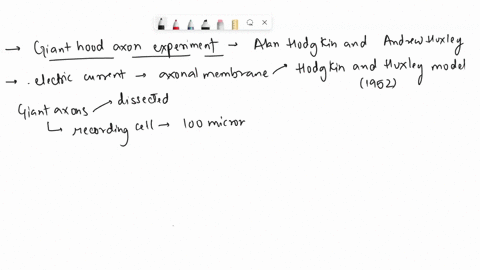 → Giant hood axon experiment → Alan Hodgkin and Andrew Huxley
→ . electric current → axonal membrane → Hodgkin and Huxley model
(1952)
Giant axons → dissected
↳ recording cell → 100 micror